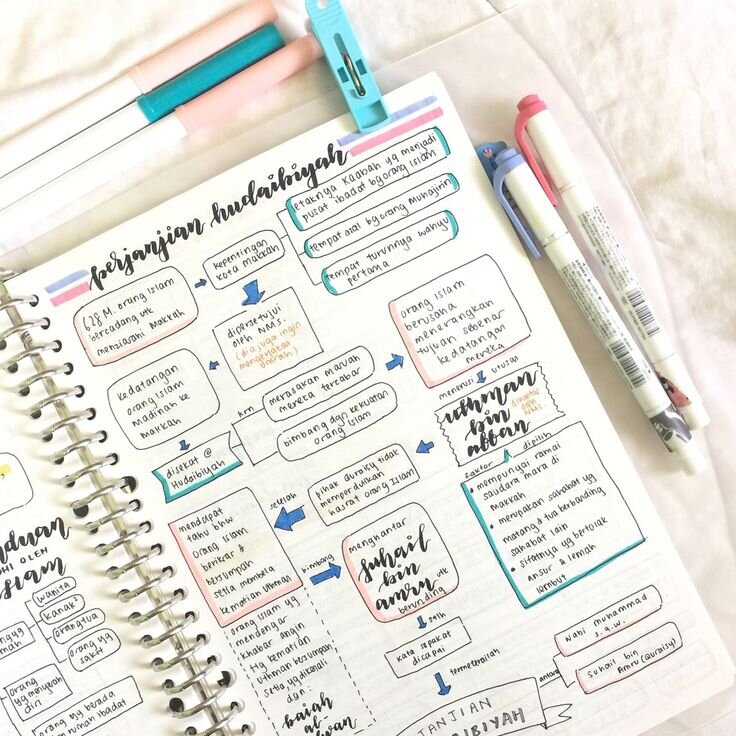 perjanjian hudaibiyah
628 M. orang Islam
bercadang utk
menziarahi Makkah
kepentingan
kota makkah
letaknya Kaabah yg menjadi
pusat ibadat bg orang Islam
tempat asal bg orang Muhajirin
tempat turunnya wahyu
pertama
dipersetujui
oleh N.M.S.
(dia juga ingin
mengerjakan
umrah)
kedatangan
orang Islam
madinah ke
makkah
disekat @
Hudaibiyah
krn
merasakan maruah
mereka tercabar
bimbang dgn kekuatan
orang Islam
orang Islam
berusaha
menerangkan
tujuan sebenar
kedatangan
mereka
menerusi utusan
uthman
bin
affan
dihantar
oleh
N.M.S.
faktor dipilih
• mempunyai ramai
saudara mara di
makkah
• merupakan sahabat yg
matang & tua berbanding
sahabat lain
• sifatnya yg bertolak
ansur & lemah
lembut
pihak Quraisy tidak
memperdulikan
hasrat orang Islam
setelah
mendapat
tahu bhw
orang Islam
berikrar &
bersumpah
setia membela
kematian Uthman
bimbang
menghantar
suhail
bin
amru
utk
berunding
orang Islam yg
mendengar
khabar angin
ttg kematian
Uthman bersumpah
setia yg dikenali
dgn:
baiah
al-
sblh
kata sepakat
dicapai
termeterailah
JANJIAN
IBIYAH
antara
Nabi muhammad
s.a.w.
Suhail bin
Amru (Quraisy)
OHI OLEH
wanita
kanak²
orang tua
orang yg
sakit
orang
yg menyerah
diri
orang yg berada
rumah ibadat